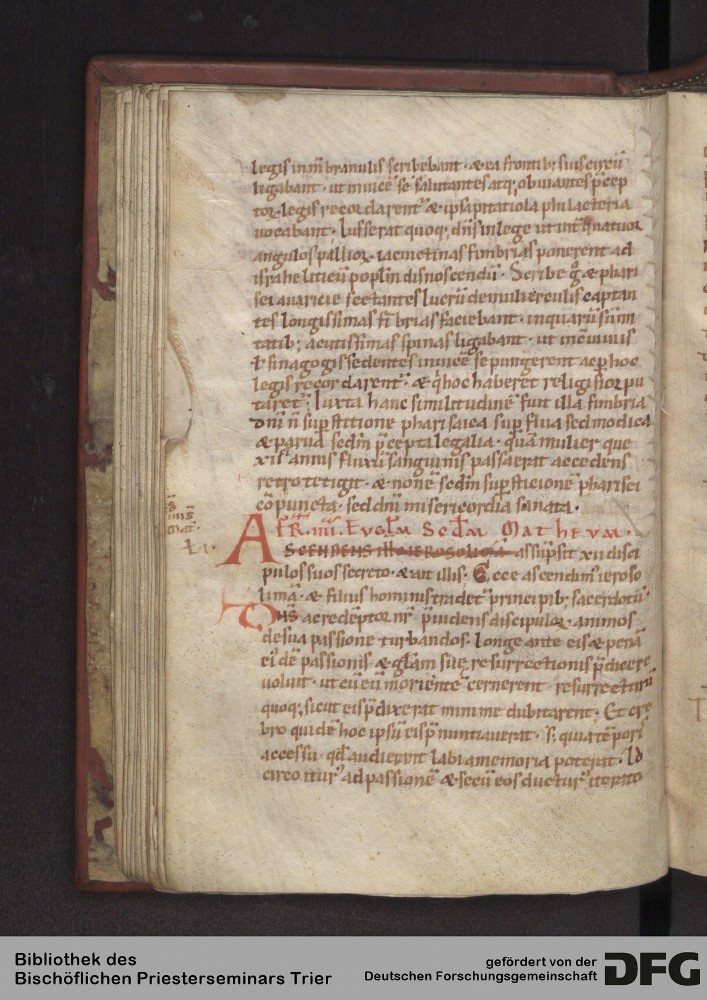 legis in mbranulis scribebant · & ea frontib; suis circū
ligabant · ut inuicē se salutantes atq; obuiantes p̄cep
tor legis recordarent̄ & ipsa pitatiola philacteria
uocabant · Iusserat quoq; dn̄s in lege ut in quatuor
angulos pallior iacinctinas fimbrias ponerent ad
israheliticū popl̄m disnoscendū · Scribe g̊ & phari
sei auaricie sectantes lucrū de mulierculis captan
tes longissimas fībrias faciebant · in quarū sūm
tatib; acutissimas spinas ligabant · ut incēuiuiis
ł sinagogis sedentes inuicē se pungerent ac p hoc
legis recordarent̄ · & hoc haberet religiosior pu
taret̄ · Iuxta hanc similitudinē fuit illa fimbria
dn̄i n̄ sup̄stitione pharisaica sup̄flua sed modica
& parua sedm̄ p̄cepta legalia · quā mulier que
xii annis fluxū sanguinis passa erat accedens
retro tetigit · & non ē sedm̄ sup̄sticionē pharisei
cōpuncta · sed dn̄i misericordia sanata ·
FR̄ · iiii · Euglm̄ Scdm̄ Matheum ·
ASCENDENS IHC IEROSOLIMA assūpsit xii disci
pulos suos secreto · & ait illis · Ecce ascendim' ieroso
limā · & filius hominis tradet̄ principib; sacerdotū ·
Dn̄s ac redēptor nr̄ p̄uidens discipulor animos
de sua passione turbandos · longe ante eis & penā
ei'dē passionis & glam̄ suę resurrectionis p̄dicere
uoluit · ut cū eū morientē cernerent resurrecturū
quoq; sicut eis p̄dixerat minime dubitarent · Et cre
bro quidē hoc ipsū eis p̄nuntiauerat · S; quia tēpori
accessu qd̄ audierunt labi a memoria poterat · Id
circo itur' ad passionē & secū eos ductur' iterato
Bibliothek des
Bischöflichen Priesterseminars Trier
gefördert von der
Deutschen Forschungsgemeinschaft
DFG